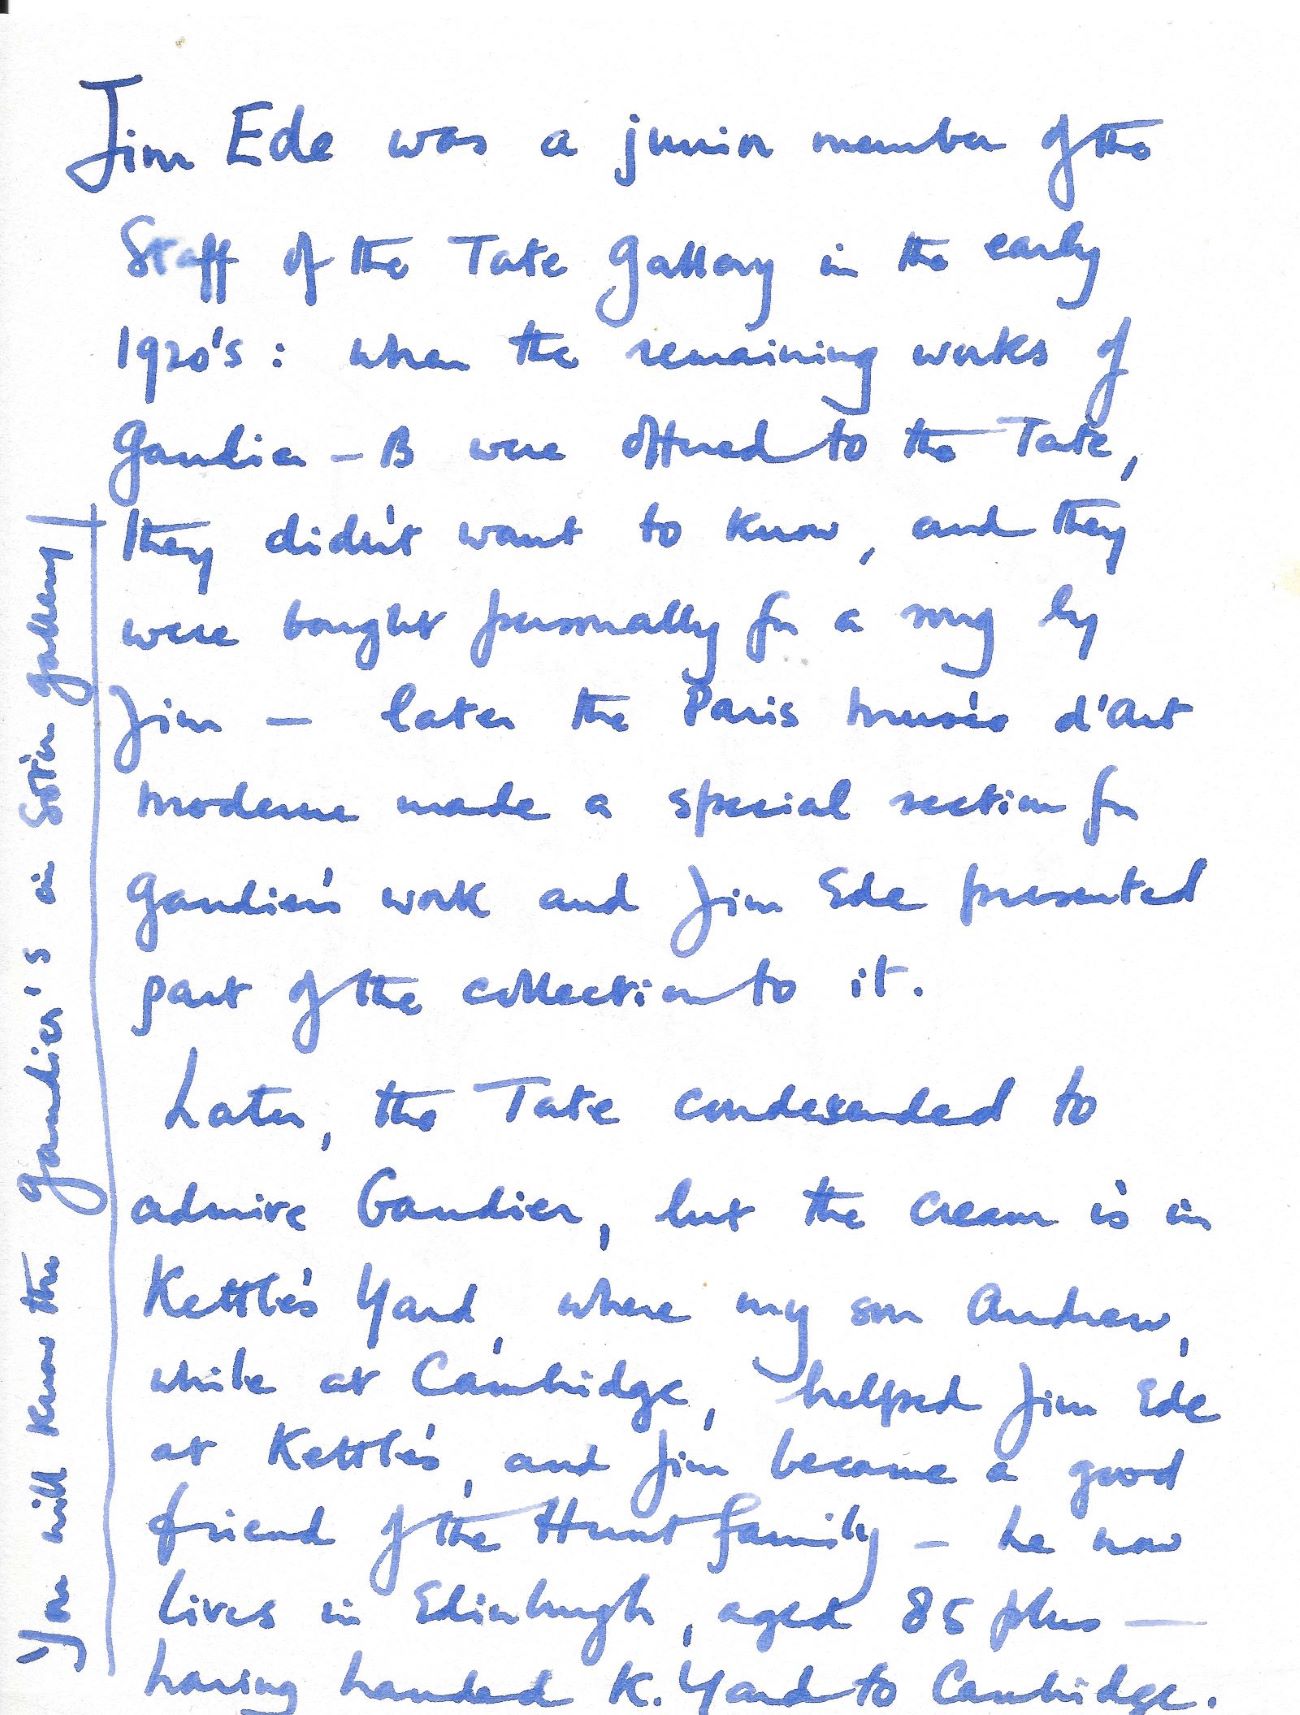 Jim Ede was a junior member of the
Staff of the Tate Gallery in the early
1920's : when the remaining works of
Gaudier - B were offered to the Tate,
they didn't want to know, and they
were bought personally for a song by
Jim — later the Paris musée d'art
moderne made a special section for
Gaudier's work and Jim Ede presented
part of the collection to it.
Later, the Tate condescended to
admire Gaudier, but the cream is in
Kettle's Yard, where my son Andrew,
while at Cambridge, helped Jim Ede
at Kettle's, and Jim became a good
friend of the Hunt family - he now
lives in Edinburgh, aged 85 plus —
having handed K. Yard to Cambridge.
You will know the Gaudier's in gallery